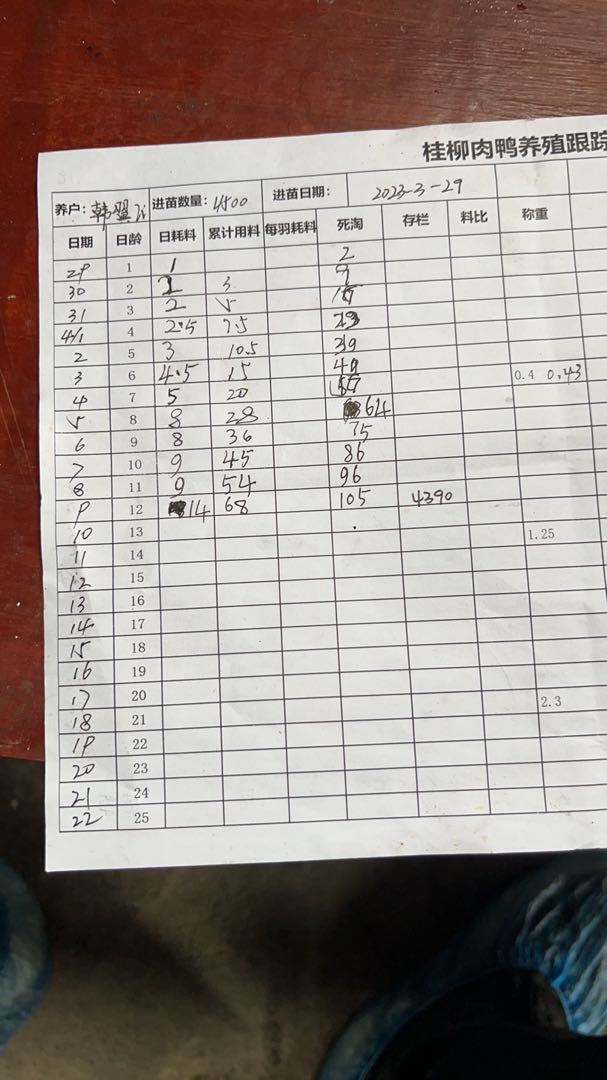 桂柳肉鸭养殖跟踪
养户: 韩翼飞 进苗数量: 4500 进苗日期: 2023-3-29
日期 日龄 日耗料 累计用料 每羽耗料 死淘 存栏 料比 称重
29 1 1 2
30 2 3
31 3 2 5
4/1 4 2.5 7.5 23
2 5 3 10.5 39
3 6 4.5 15 49
4 7 5 20 57 0.4 0.43
5 8 8 28 64
6 9 8 36 75
7 10 9 45 86
8 11 9 54 96
9 12 14 68 105 4390
10 13 1.25
11 14
12 15
13 16
14 17
15 18
16 19
17 20
18 21 2.3
19 22
20 23
21 24
22 25